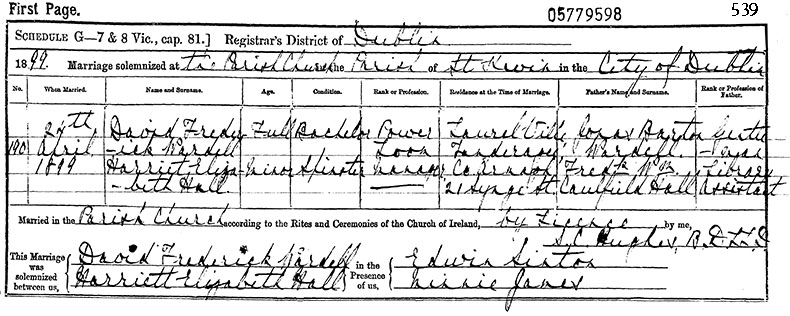 First Page. 05779598 539
SCHEDULE G—7 & 8 Vic., cap. 81.] Registrar's District of Dublin
1899. Marriage solemnized at the Parish Church in the Parish of St. Kevin in the City of Dublin
No. When Married. Name and Surname. Age. Condition. Rank or Profession. Residence at the Time of Marriage. Father's Name and Surname. Rank or Profession of Father.
24th David Freder Full Bachelor Power Laurel Ville Jonas Barton Gentle
190 April -ick Wardell Loom Tanderagee Wardell -man
1899 Harriet Eliza- Minor Spinster Manager Co. Armagh Fredk. Wm. Library
-beth Hall. 21 Synge St. Caulfield Hall Assistant
Married in the Parish Church according to the Rites and Ceremonies of the Church of Ireland, by Licence by me,
S. C. Hughes, B.D. LL.D
This Marriage was solemnized between us, David Frederick Wardell in the Presence of us, Edwin Sinton
Harriett Elizabeth Hall Minnie James